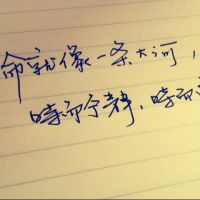 命就像一条大河，
时而宁静，时而